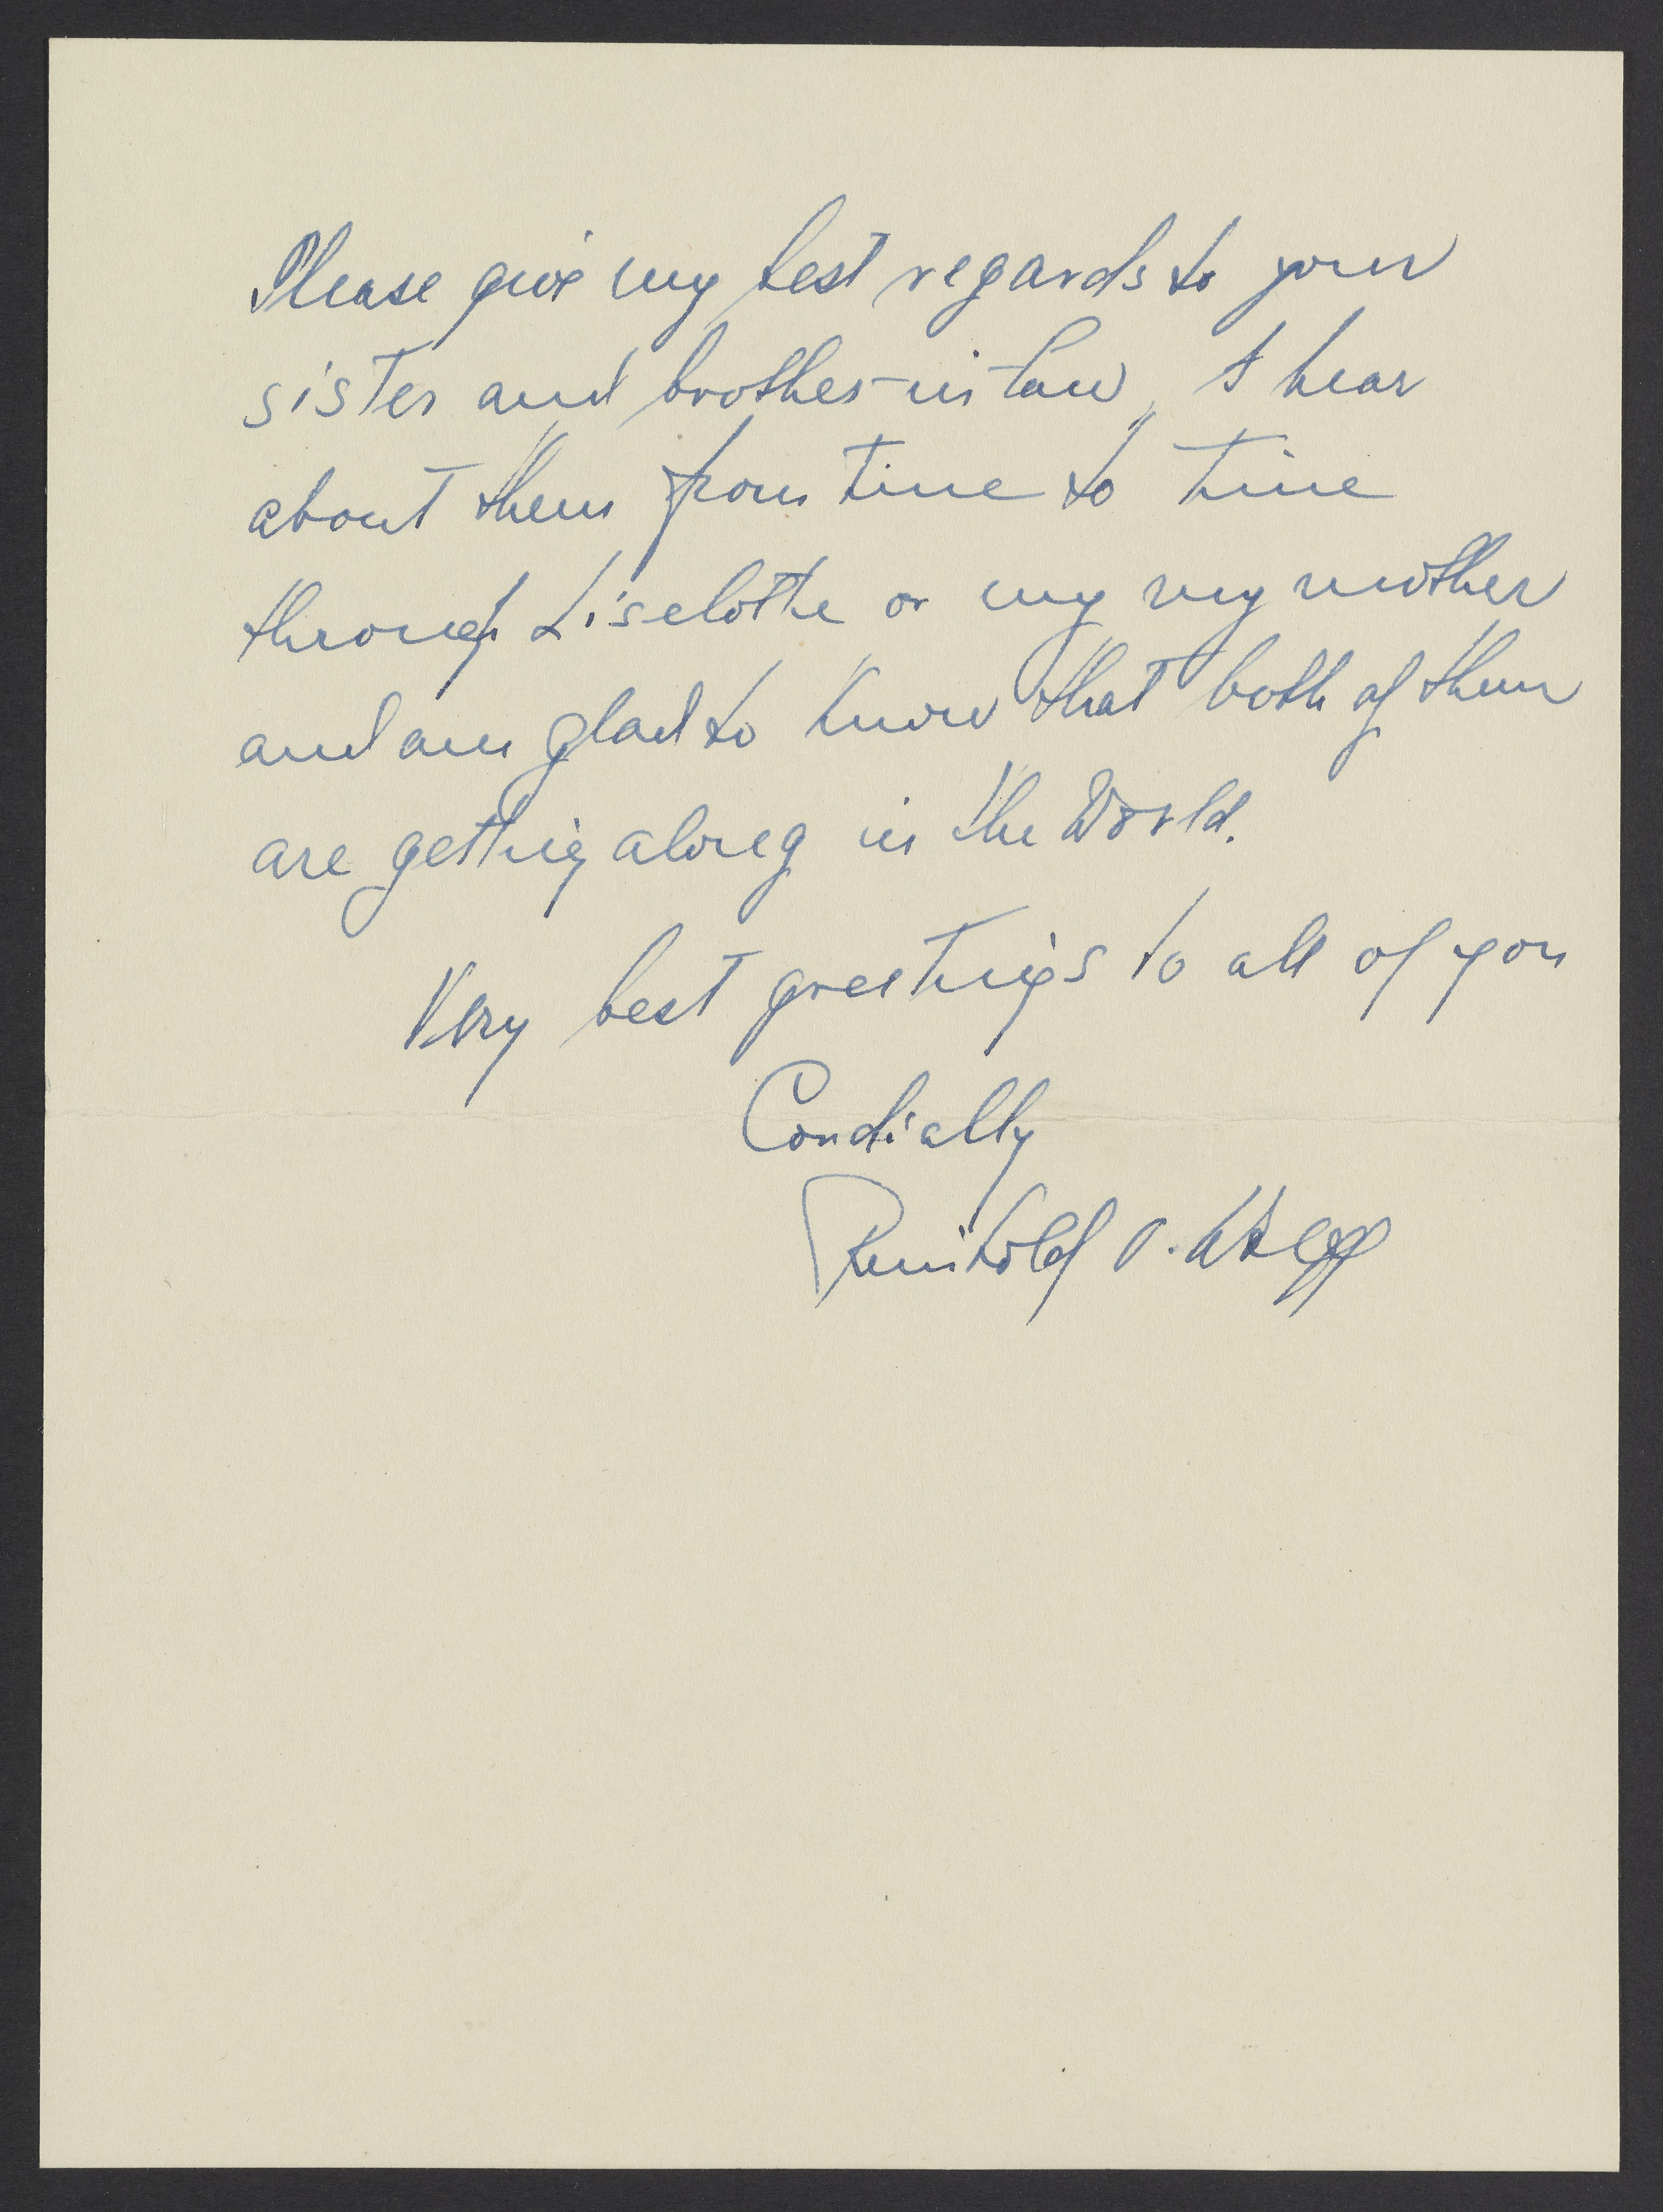 Please give my best regards to your
sister and brother-in-law, I hear
about them from time to time
through Liselotte or my my mother
and am glad to know that both of them
are getting along in the World.
Very best greetings to all of you
Cordially
Reinhold